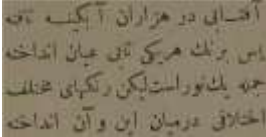 آفتابی در هزاران آبگینه تافته
پس برنگ هریکی تابی عیان انداخته
جمله یك نور است لیکن رنگهای مختلف
اختلافی درمیان این و آن انداخته